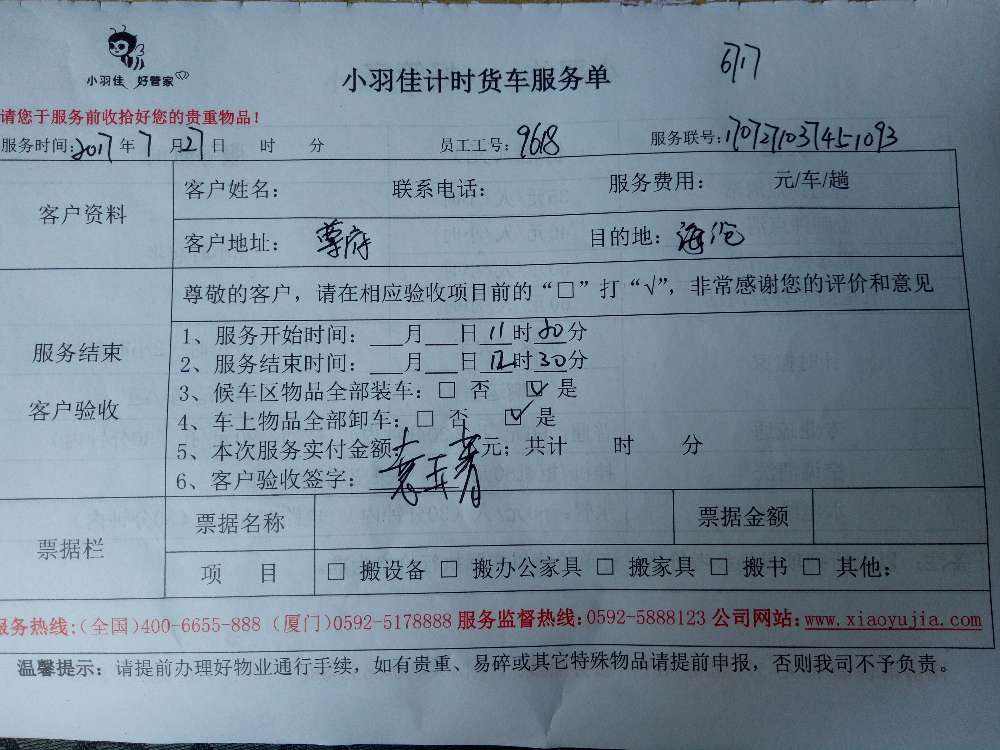 小羽佳 好管家
小羽佳计时货车服务单
617
请您于服务前收拾好您的贵重物品!
服务时间:2017年7月27日 时 分 员工工号:9618 服务联号:1707271037451093
客户资料
客户姓名: 联系电话: 服务费用: 元/车/趟
客户地址: 尊府 目的地: 海沧
服务结束
客户验收
尊敬的客户，请在相应验收项目前的“□”打“√”，非常感谢您的评价和意见
1、服务开始时间：___月___日11时30分
2、服务结束时间：___月___日12时30分
3、候车区物品全部装车：□ 否 ☑ 是
4、车上物品全部卸车：□ 否 ☑ 是
5、本次服务实付金额 元；共计 时 分
6、客户验收签字：
票据栏
票据名称 票据金额
项 目 □ 搬设备 □ 搬办公家具 □ 搬家具 □ 搬书 □ 其他：
服务热线:(全国)400-6655-888 (厦门)0592-5178888 服务监督热线:0592-5888123 公司网站:www.xiaoyujia.com
温馨提示：请提前办理好物业通行手续，如有贵重、易碎或其它特殊物品请提前申报，否则我司不予负责。